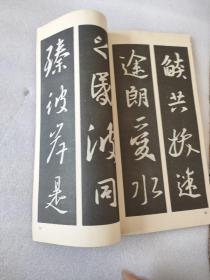 燄共拔迷
途朗愛水
之昏波同
臻彼岸是